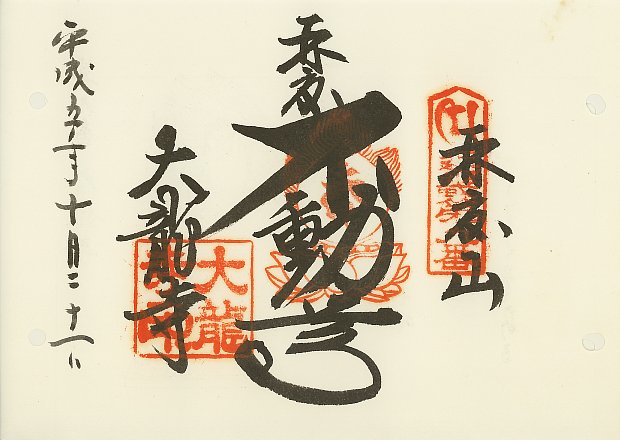 再度山
再度
不動尊
大龍寺
大龍
寺印
平成五年十月二十一日